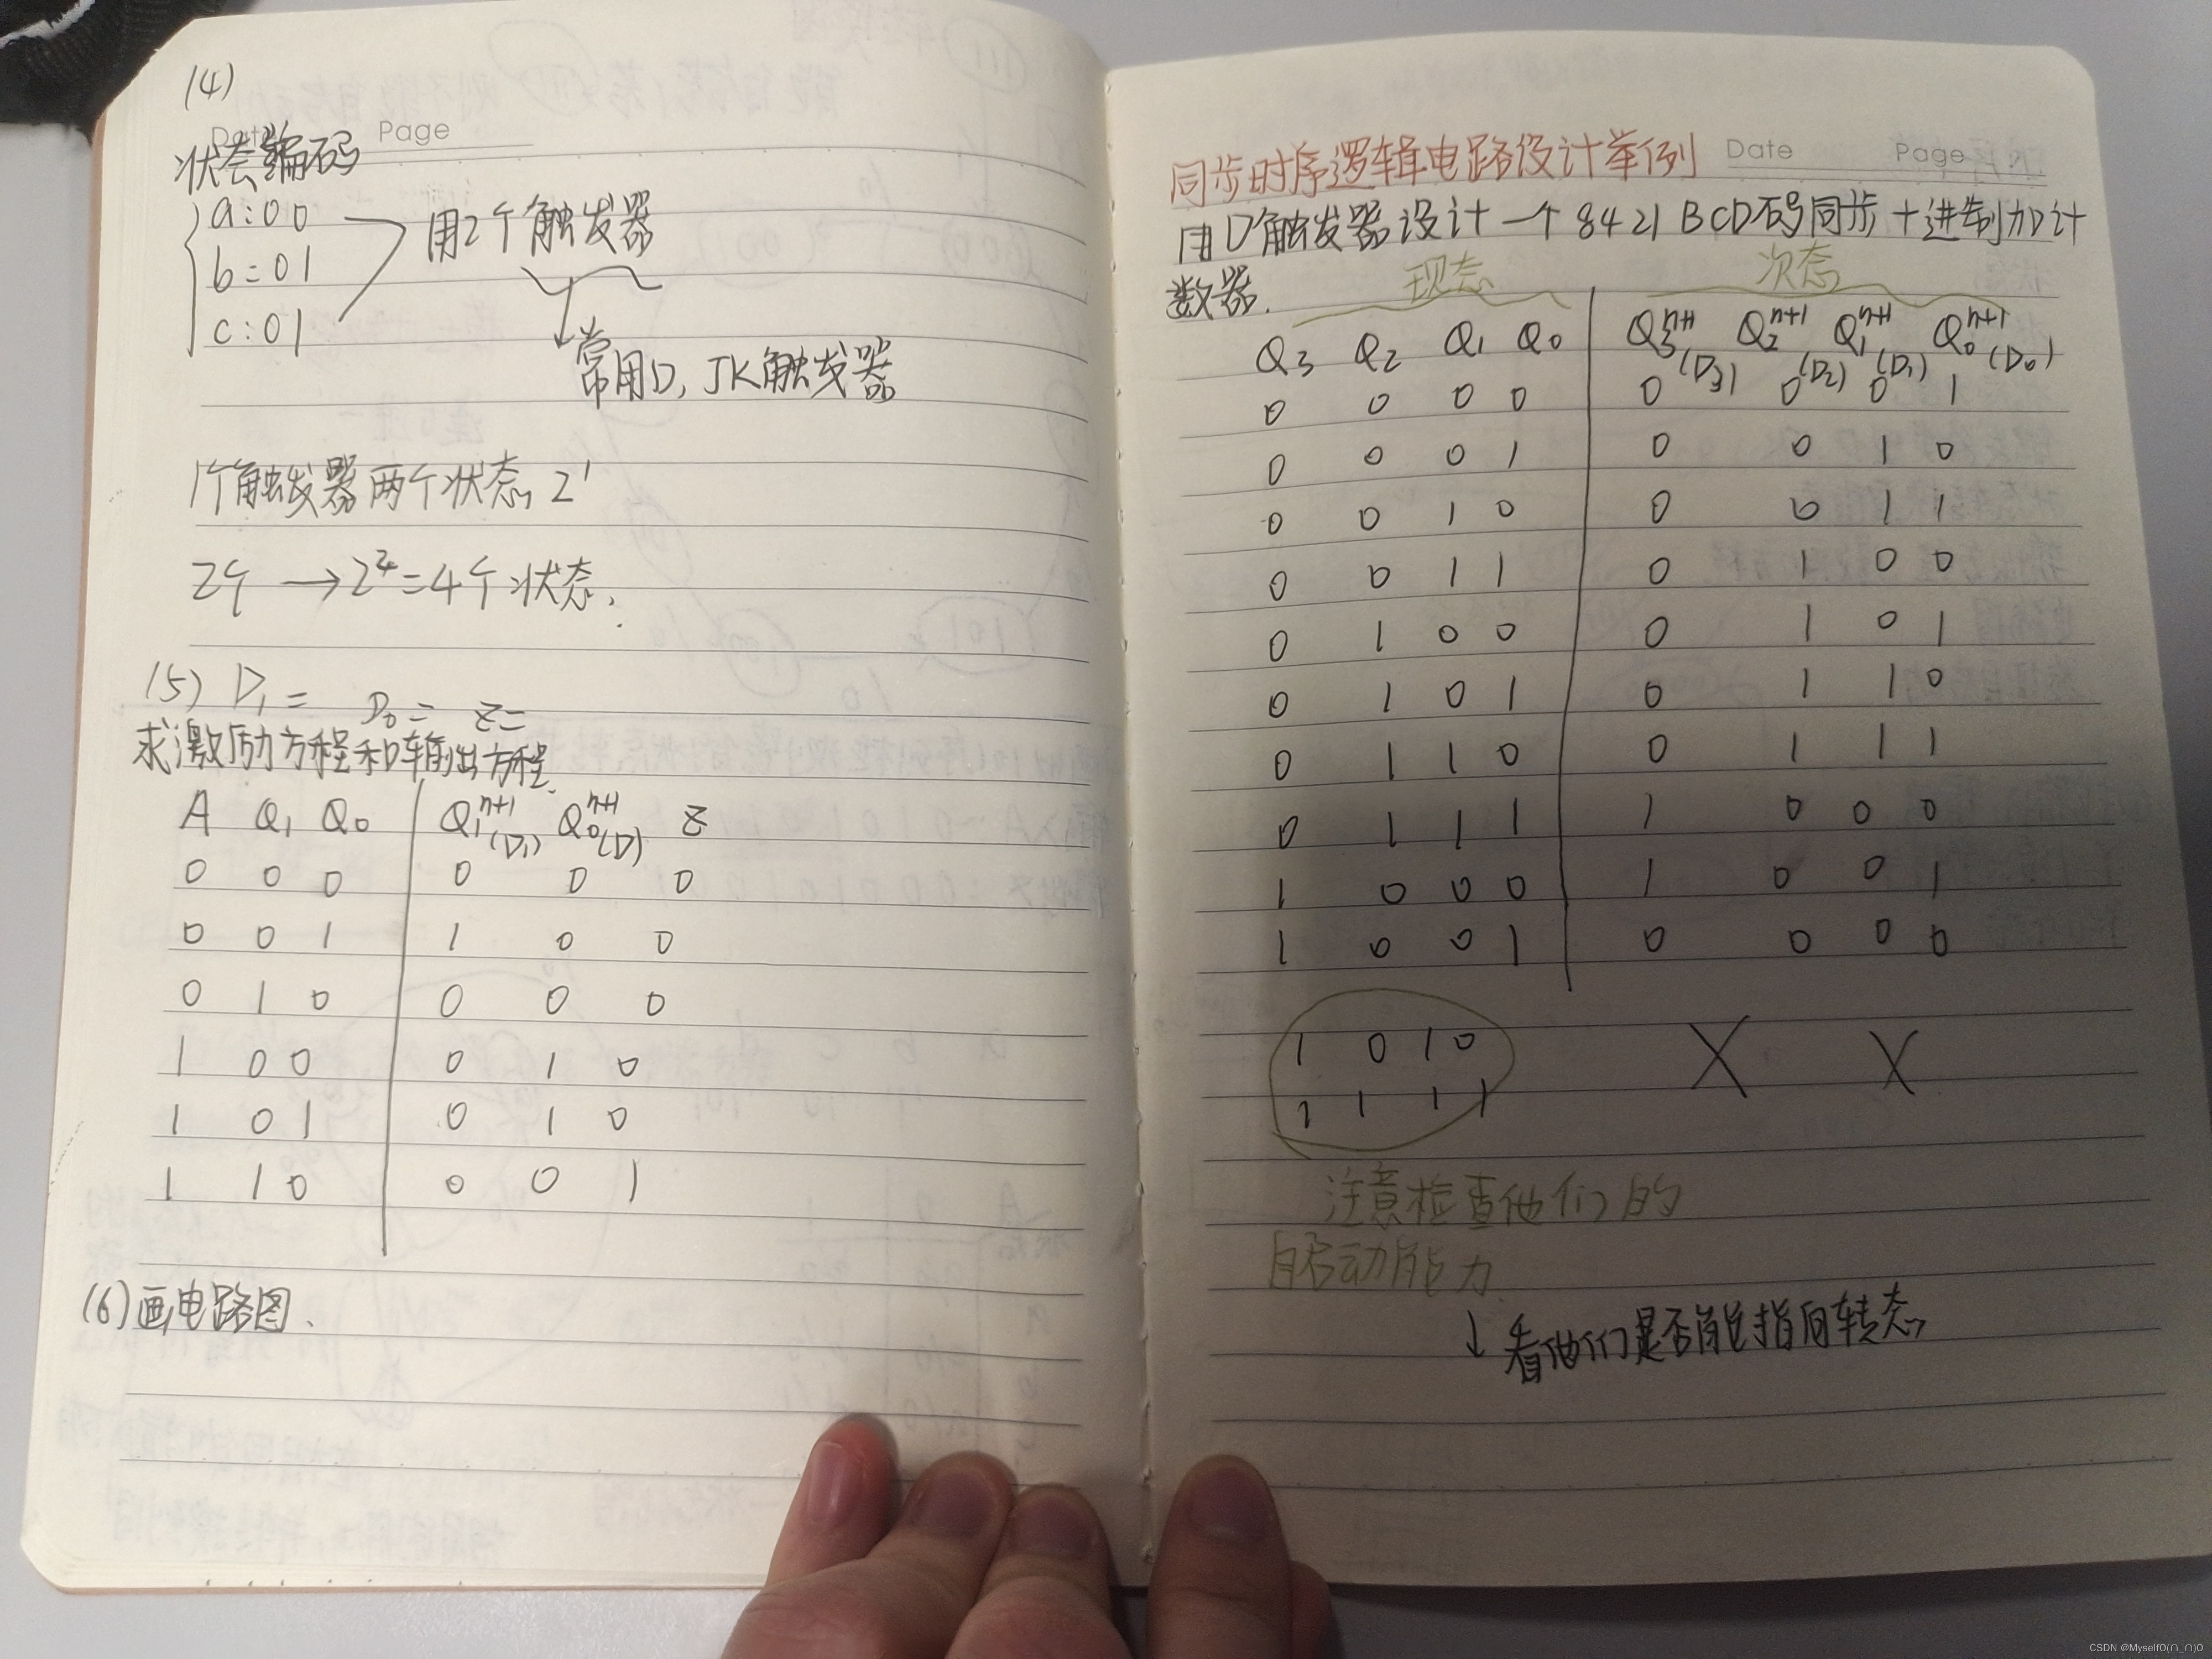 (4)
Date Page
状态编码
a:00
b=01
c:01
用2个触发器
常用D,JK触发器
1个触发器两个状态 2¹
2个 → 2²=4个状态.
(5) D₁= D₀= Z=
求激励方程和输出方程.
A Q₁ Q₀ Q₁ⁿ⁺¹(D₁) Q₀ⁿ⁺¹(D) Z
0 0 0 0 0 0
0 0 1 1 0 0
0 1 0 0 0 0
1 0 0 0 1 0
1 0 1 0 1 0
1 1 0 0 0 1
(6)画电路图.
同步时序逻辑电路设计举例 Date Page
用D触发器设计一个8421BCD码同步十进制加计
数器.
现态 次态
Q₃ Q₂ Q₁ Q₀ Q₃ⁿ⁺¹(D₃) Q₂ⁿ⁺¹(D₂) Q₁ⁿ⁺¹(D₁) Q₀ⁿ⁺¹(D₀)
0 0 0 0 0 0 0 1
0 0 0 1 0 0 1 0
0 0 1 0 0 0 1 1
0 0 1 1 0 1 0 0
0 1 0 0 0 1 0 1
0 1 0 1 0 1 1 0
0 1 1 0 0 1 1 1
0 1 1 1 1 0 0 0
1 0 0 0 1 0 0 1
1 0 0 1 0 0 0 0
1 0 1 0 X X
1 1 1 1
注意检查他们的
自启动能力.
↓看他们是否能指向转态
CSDN @MyselfO(∩_∩)O